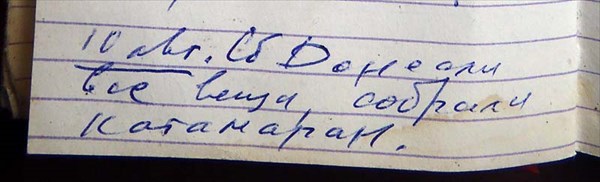 10 авг. Сб Донесли
все вещи, собрали
катамаран.